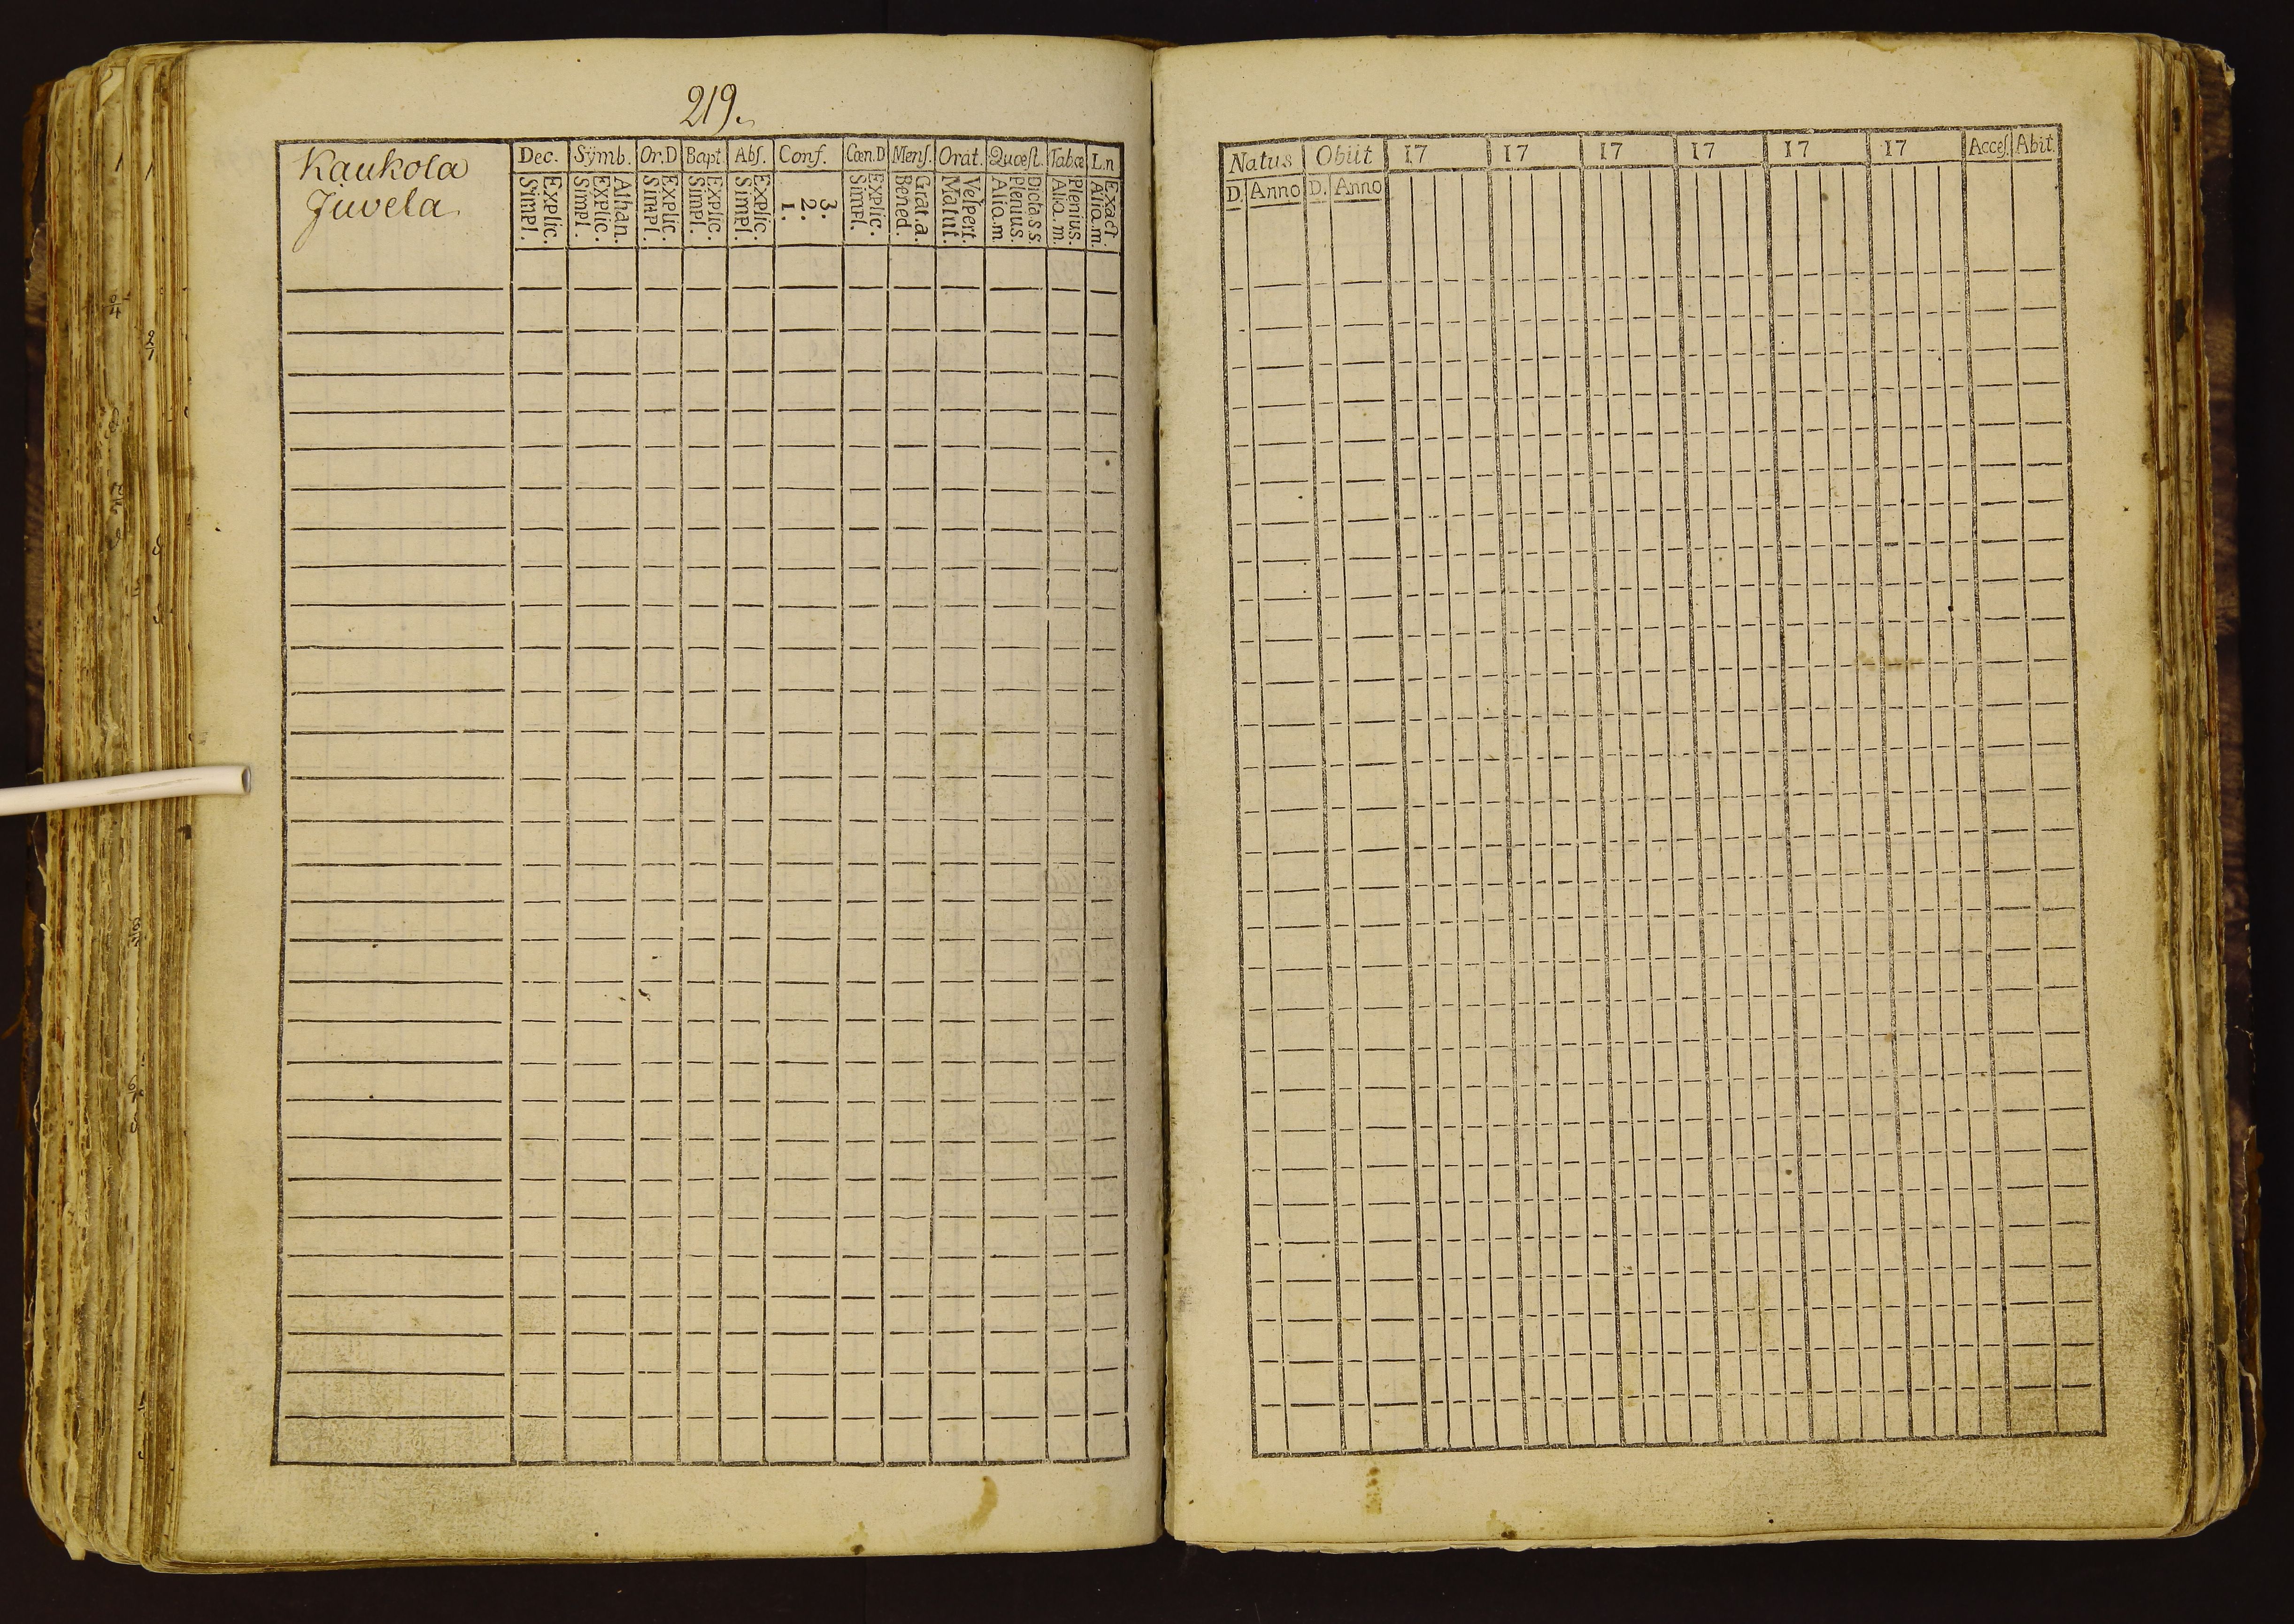 219.
Kaukola
Juvela
Dec. Symb. Or.D Bapt Abs. Conf. Cœn.D Mens. Orat. Quæst. Tab.œ L.n
Explic. Simpl.
Athan. Explic. Simpl.
Explic. Simpl.
Explic. Simpl.
Explic. Simpl.
3. 2. 1.
Explic. Simpl.
Grat.a. Bened.
Vespert. Matut.
Dicta s s. Plenius. Alio.m
Plenius. Alio.m.
Exact. Alio.m.
Natus Obiit 17 17 17 17 17 17 Acces. Abit.
D. Anno D. Anno